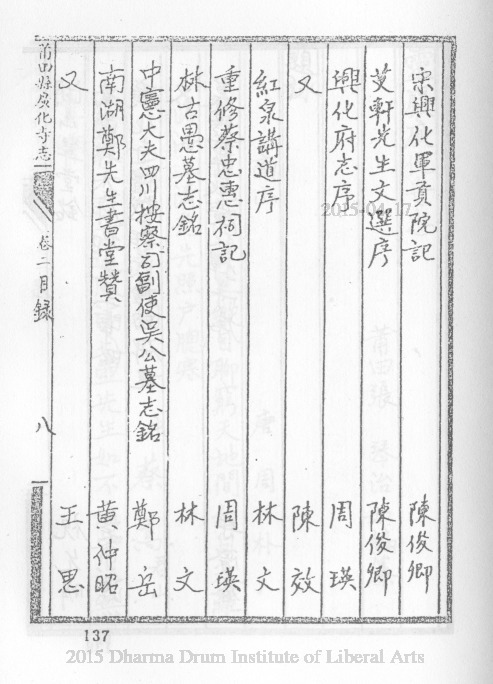 宋興化軍貢院記　陳俊卿
艾軒先生文選序　陳俊卿
興化府志序　周瑛
又　陳效
紅泉講道序　林文
重修蔡忠惠祠記　周瑛
林古愚墓志銘　林文
中憲大夫四川按察司副使吳公墓志銘　鄭岳
南湖鄭先生書堂贊　黃仲昭
又　王思
莆田縣廣化寺志　卷二目録　八
137
2015-04-17
2015 Dharma Drum Institute of Liberal Arts